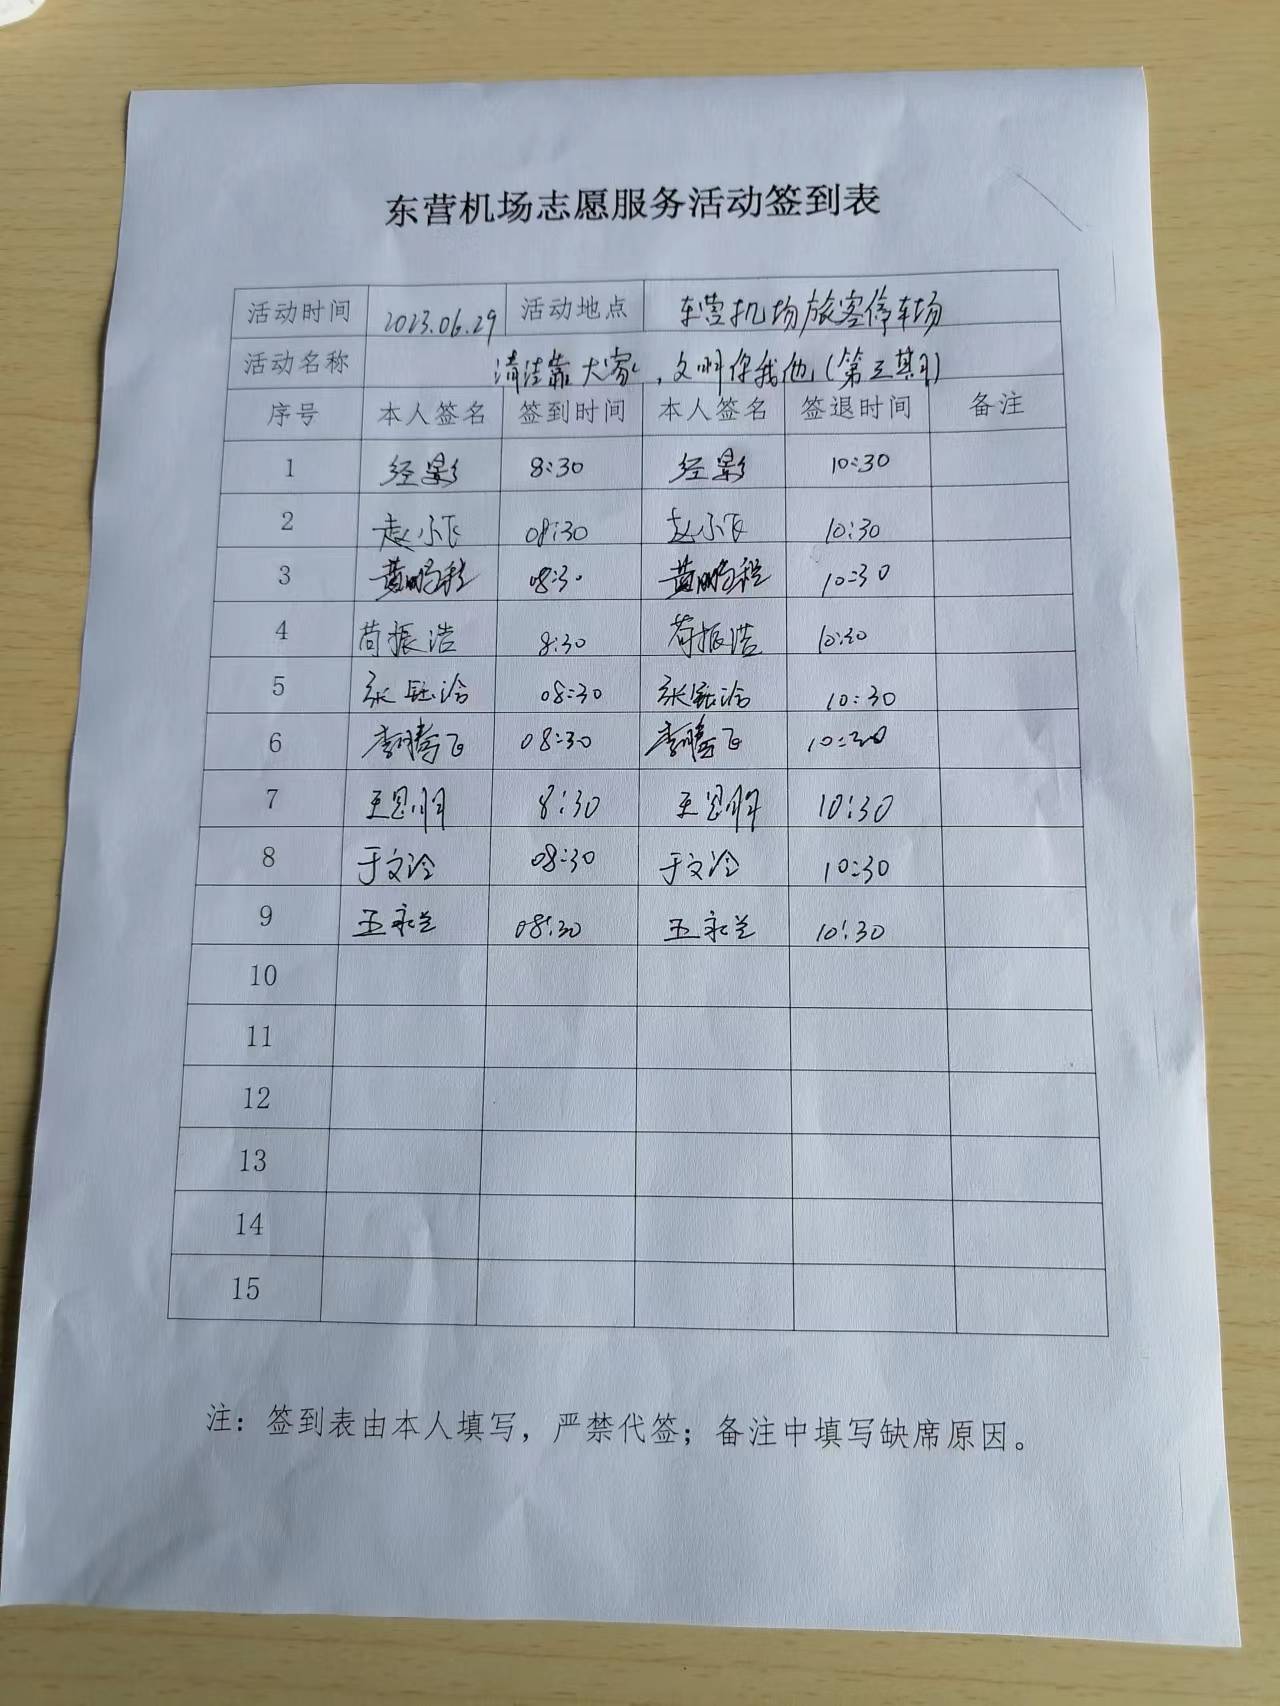 东营机场志愿服务活动签到表
活动时间 2023.06.29 活动地点 东营机场旅客停车场
活动名称 清洁靠大家,文明你我他(第三期)
序号 本人签名 签到时间 本人签名 签退时间 备注
1 经影 8:30 经影 10:30
2 赵小飞 08:30 赵小飞 10:30
3 黄鹏程 08:30 黄鹏程 10:30
4 苟振浩 8:30 苟振浩 10:30
5 张钰涵 08:30 张钰涵 10:30
6 李腾飞 08:30 李腾飞 10:30
7 王恩明 8:30 王恩明 10:30
8 于文泠 08:30 于文泠 10:30
9 王永兰 08:30 王永兰 10:30
10
11
12
13
14
15
注：签到表由本人填写，严禁代签；备注中填写缺席原因。